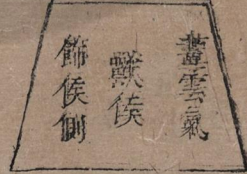 畫雲氣
獸侯
飾侯側